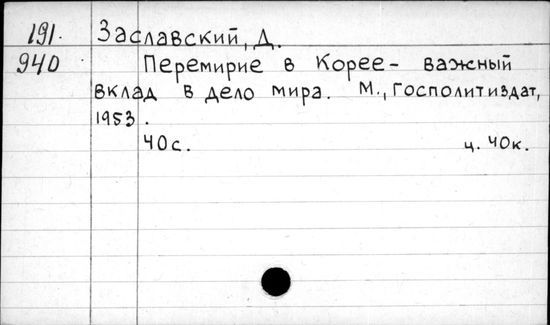 191. Заславский, Д.
940 Перемирие в Корее - важный
вклад в дело мира. М., Госполитиздат,
1953.
40с. ц. 40к.